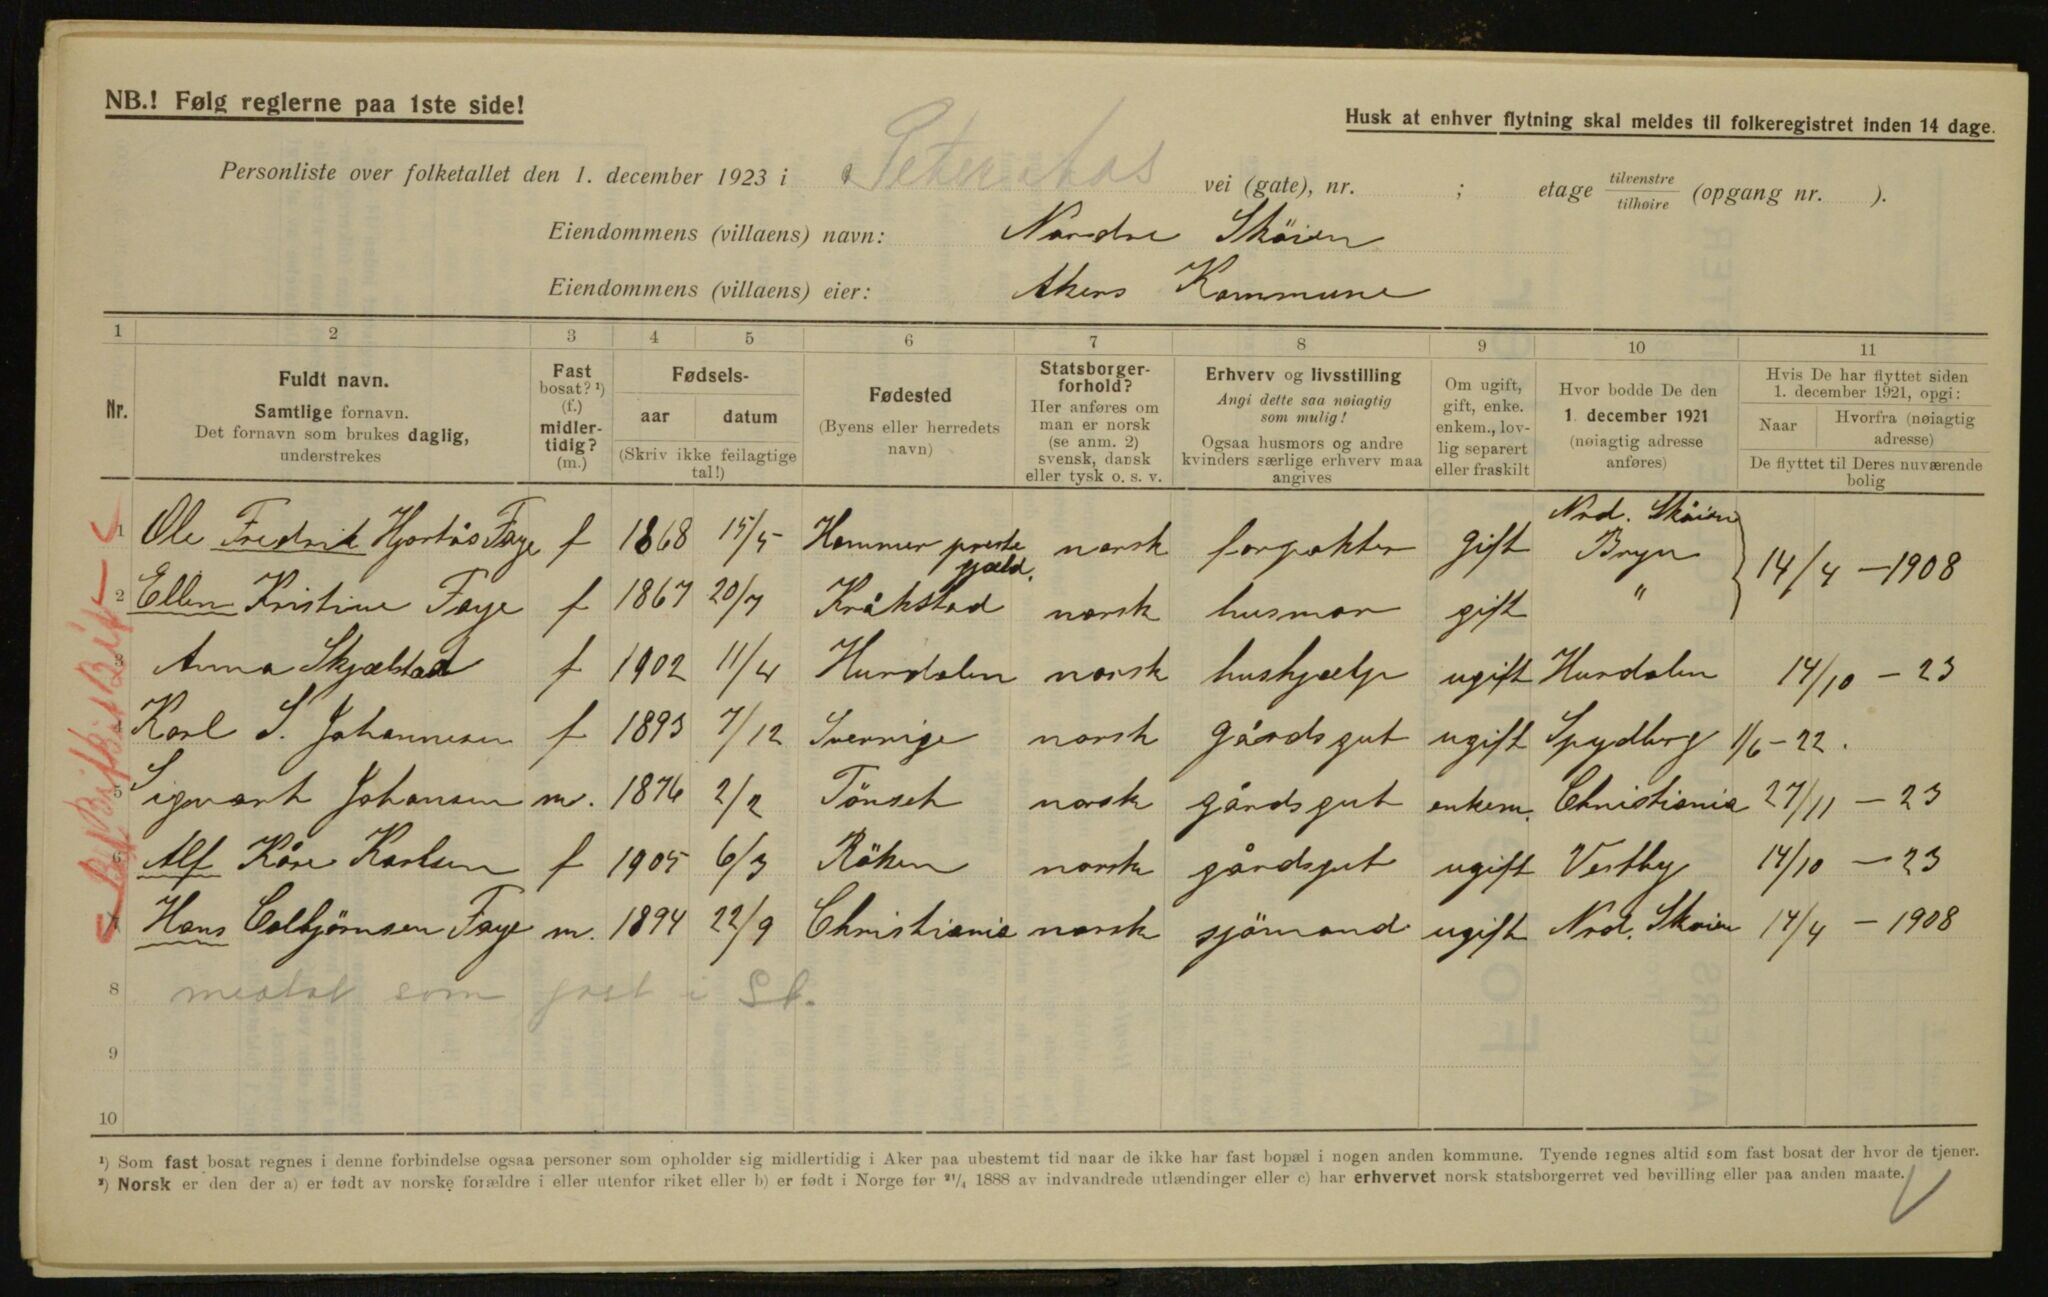 NB.! Følg reglerne paa 1ste side!
Husk at enhver flytning skal meldes til folkeregistret inden 14 dage.
Personliste over folketallet den 1. december 1923 i vei (gate), nr. ; etage tilvenstre tilhøire (opgang nr. ).
Eiendommens (villaens) navn: Nordre Sköien
Eiendommens (villaens) eier: Akers Kommune
1 2 3 4 5 6 7 8 9 10 11
Nr.
Fuldt navn.
Samtlige fornavn.
Det fornavn som brukes daglig,
understrekes
Fast
bosat? ¹)
(f.)
midler-
tidig?
(m.)
Fødsels-
aar datum
(Skriv ikke feilagtige
tal!)
Fødested
(Byens eller herredets
navn)
Statsborger-
forhold?
Her anføres om
man er norsk
(se anm. 2)
svensk, dansk
eller tysk o. s. v.
Erhverv og livsstilling
Angi dette saa nøiagtig
som mulig!
Ogsaa husmors og andre
kvinders særlige erhverv maa
angives
Om ugift,
gift, enke.
enkem., lov-
lig separert
eller fraskilt
Hvor bodde De den
1. december 1921
(nøiagtig adresse
anføres)
Hvis De har flyttet siden
1. december 1921, opgi:
Naar Hvorfra (nøiagtig
adresse)
De flyttet til Deres nuværende
bolig
1 Ole Fredrik Hjortås Faye f 1868 15/5 Hammer preste gjæld. norsk forpakter gift Nrd. Sköien Bryn 14/4 – 1908
2 Ellen Kristine Faye f 1867 20/7 Kråkstad norsk husmor gift "
3 Anna Skjælstad f 1902 11/4 Hurdalen norsk hushjælp ugift Hurdalen 14/10 – 23
4 Karl S. Johannesen f 1893 7/12 Sverrige norsk gårdsgut ugift Spydberg 1/6 – 22.
5 Sigvart Johansen m. 1876 2/2 Tönset norsk gårdsgut enkem. Christiania 27/11 – 23
6 Alf Kåre Karlsen f 1905 6/3 Röken norsk gårdsgut ugift Vestby 14/10 – 23
7 Hans Colbjörnsen Faye m. 1894 22/9 Christiania norsk sjömand ugift Nrd. Sköien 14/4 – 1908
8 som fast i
9
10
¹) Som fast bosat regnes i denne forbindelse ogsaa personer som opholder sig midlertidig i Aker paa ubestemt tid naar de ikke har fast bopæl i nogen anden kommune. Tyende regnes altid som fast bosat der hvor de tjener.
²) Norsk er den der a) er født av norske forældre i eller utenfor riket eller b) er født i Norge før ²¹/₄ 1888 av indvandrede utlændinger eller c) har erhvervet norsk statsborgerret ved bevilling eller paa anden maate.